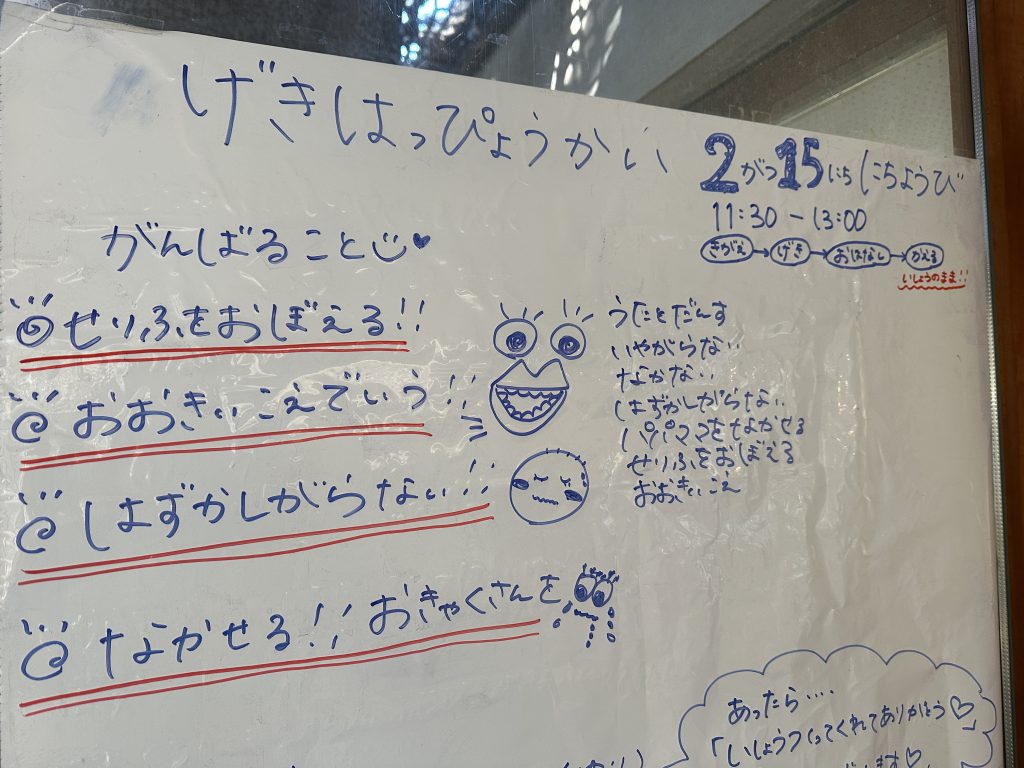 げきはっぴょうかい
2がつ15にち にちようび
11:30 - 13:00
きがえ→げき→おはなし→かえる
いしょうのまま!!
がんばること
せりふをおぼえる!!
おおきいこえでいう!!
はずかしがらない!!
なかせる!! おきゃくさんを
うたとだんす
いやがらない
なかない
はずかしがらない
パパママをなかせる
せりふをおぼえる
おおきいこえ
あったら‥‥
「いしょうつくってくれてありがとう♡」
ます♡